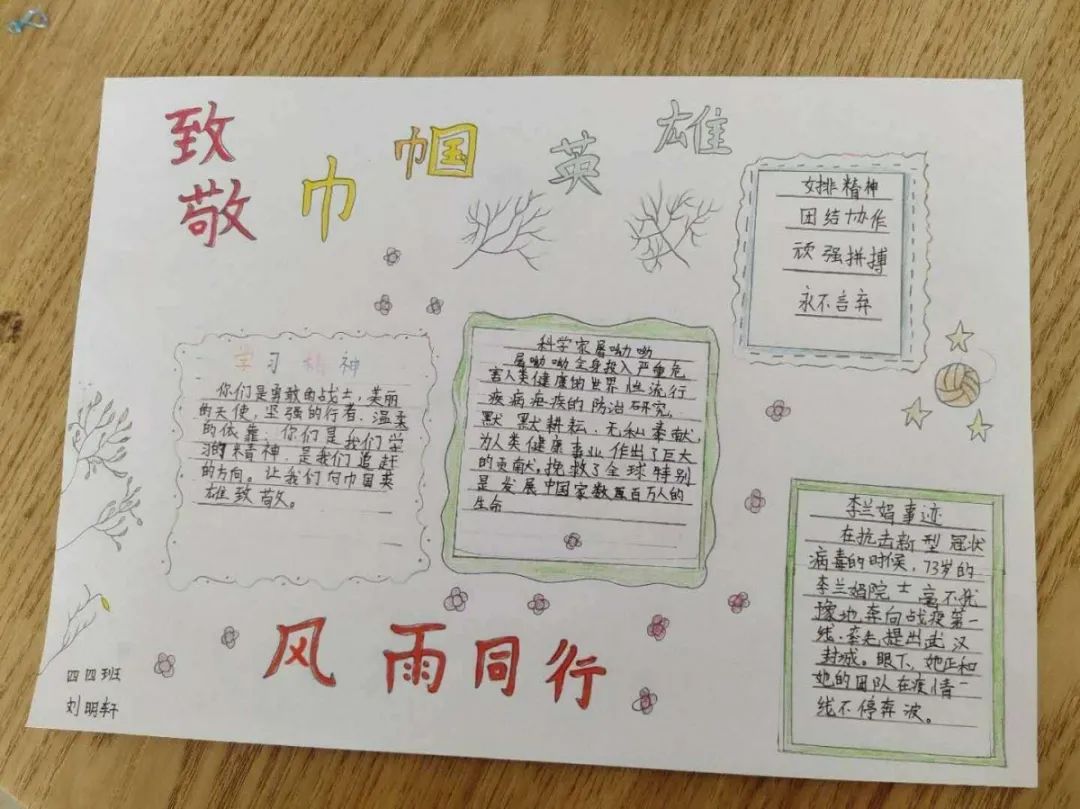 致敬
巾帼英雄
女排精神
团结协作
顽强拼搏
永不言弃
学习精神
你们是勇敢的战士，美丽
的天使，坚强的行者，温柔
的依靠，你们是我们学
习的精神，是我们追赶
的方向。让我们向巾帼英
雄致敬。
科学家屠呦呦
屠呦呦全身投入严重危
害人类健康的世界性流行
疾病疟疾的防治研究，
默默耕耘，无私奉献，
为人类健康事业作出了巨大
的贡献。挽救了全球特别
是发展中国家数百万人的
生命
李兰娟事迹
在抗击新型冠状
病毒的时候，73岁的
李兰娟院士毫不犹
豫地奔向战疫第一
线，率先提出武汉
封城。眼下，她正和
她的团队在疫情一
线不停奔波。
风雨同行
四四班
刘明轩